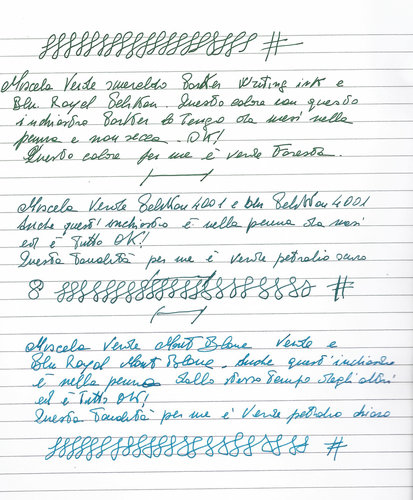 #
Miscela Verde smeraldo Parker Writing ink e
Blu Royal Pelikan. Questo colore con questo
inchiostro Parker lo tengo da mesi nella
penna e non secca. OK!
Questo colore per me è verde foresta.
Miscela Verde Pelikan 4001 e blu Pelikan 4001
Anche quest'inchiostro è nella penna da mesi
ed è tutto OK!
Questa tonalità per me è verde petrolio scuro
8 #
Miscela Verde Mont Blanc Verde e
Blu Royal Mont Blanc. Anche quest'inchiostro
è nella penna dallo stesso tempo degli altri
ed è tutto OK!
Questa tonalità per me è verde petrolio chiaro
#